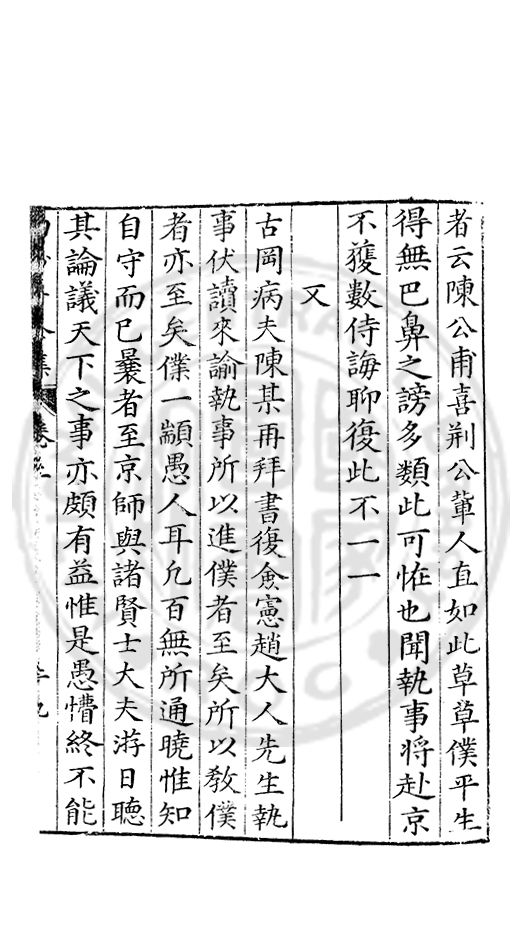 者云陳公甫喜荆公軰人直如此草草僕平生
得無巴鼻之謗多類此可恠也聞執事将赴京
不獲數侍誨聊復此不一一
又
古岡病夫陳某再拜書復僉憲趙大人先生執
事伏讀來諭執事所以進僕者至矣所以教僕
者亦至矣僕一顓愚人耳凢百無所通曉惟知
自守而已曩者至京師與諸賢士大夫游日聽
其論議天下之事亦頗有益惟是愚懵終不能